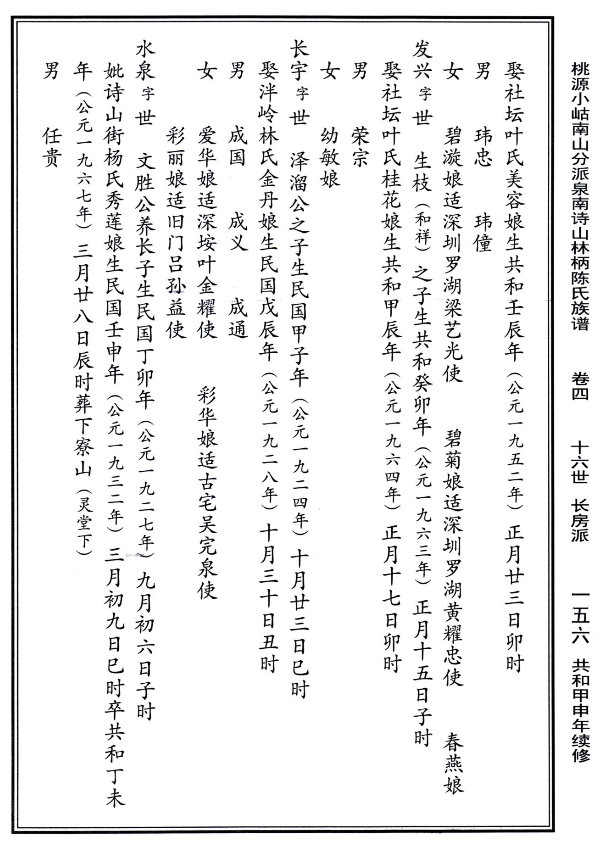 桃源小岵南山分派泉南诗山林柄陈氏族谱 卷四 十六世 长房派 一五六 共和甲申年续修
娶社坛叶氏美容娘生共和壬辰年（公元一九五二年）正月廿三日卯时
男 玮忠 玮僮
女 碧漩娘适深圳罗湖梁艺光使 碧菊娘适深圳罗湖黄耀忠使 春燕娘
发兴字世 生枝（和祥）之子生共和癸卯年（公元一九六三年）正月十五日子时
娶社坛叶氏桂花娘生共和甲辰年（公元一九六四年）正月十七日卯时
男 荣宗
女 幼敏娘
长宇字世 泽溜公之子生民国甲子年（公元一九二四年）十月廿三日巳时
娶泮岭林氏金丹娘生民国戊辰年（公元一九二八年）十月三十日丑时
男 成国 成义 成通
女 爱华娘适深垵叶金耀使 彩华娘适古宅吴完泉使
彩丽娘适旧门吕孙益使
水泉字世 文胜公养长子生民国丁卯年（公元一九二七年）九月初六日子时
妣诗山街杨氏秀莲娘生民国壬申年（公元一九三二年）三月初九日巳时卒共和丁未
年（公元一九六七年）三月廿八日辰时葬下寮山（灵堂下）
男 任贵